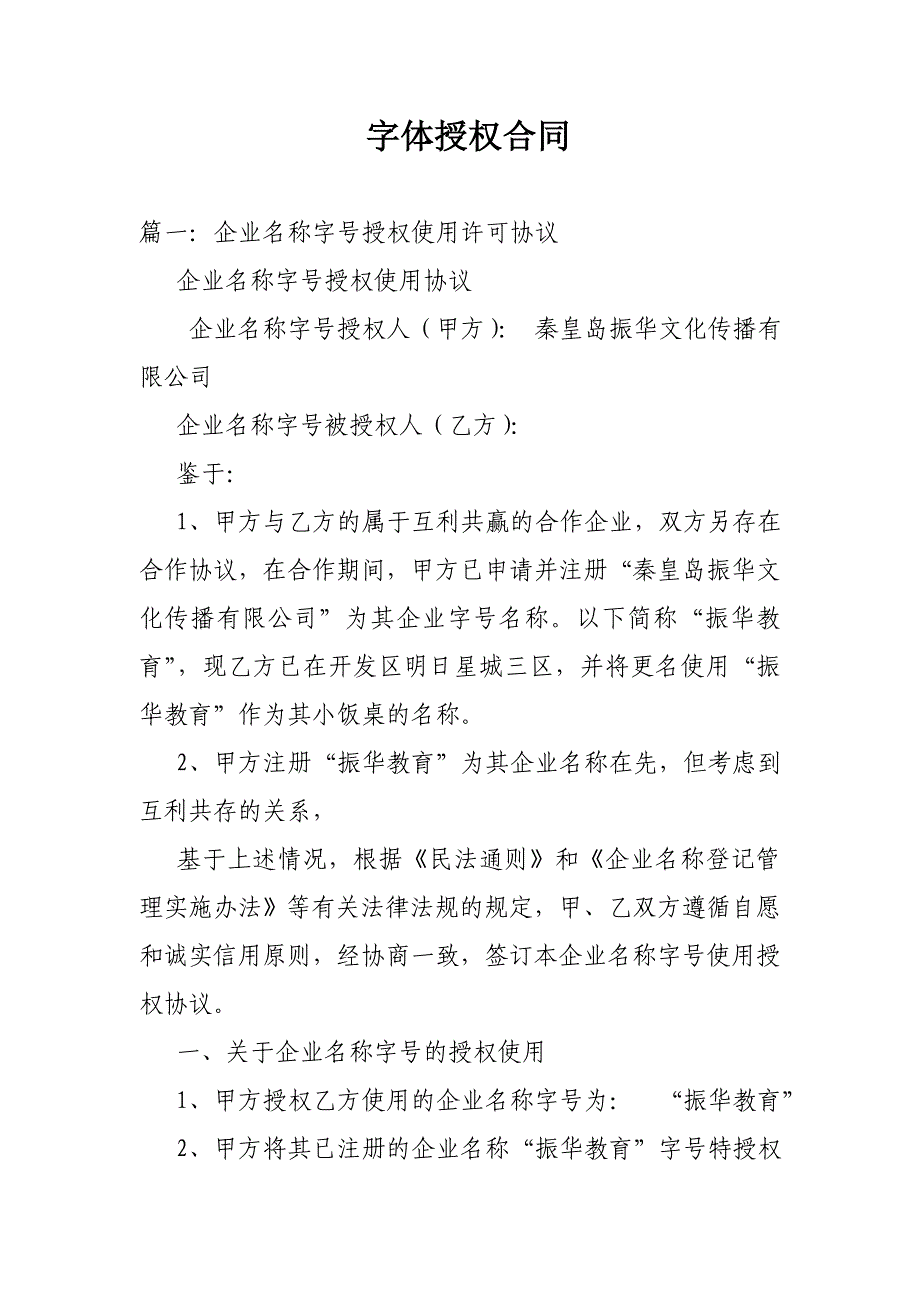 字体授权合同
篇一：企业名称字号授权使用许可协议
企业名称字号授权使用协议
企业名称字号授权人（甲方）： 秦皇岛振华文化传播有
限公司
企业名称字号被授权人（乙方）：
鉴于：
1、甲方与乙方的属于互利共赢的合作企业，双方另存在
合作协议，在合作期间，甲方已申请并注册“秦皇岛振华文
化传播有限公司”为其企业字号名称。以下简称“振华教
育”，现乙方已在开发区明日星城三区，并将更名使用“振
华教育”作为其小饭桌的名称。
2、甲方注册“振华教育”为其企业名称在先，但考虑到
互利共存的关系，
基于上述情况，根据《民法通则》和《企业名称登记管
理实施办法》等有关法律法规的规定，甲、乙双方遵循自愿
和诚实信用原则，经协商一致，签订本企业名称字号使用授
权协议。
一、关于企业名称字号的授权使用
1、甲方授权乙方使用的企业名称字号为： “振华教育”
2、甲方将其已注册的企业名称“振华教育”字号特授权